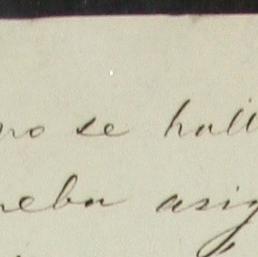 no se hall
neba asig